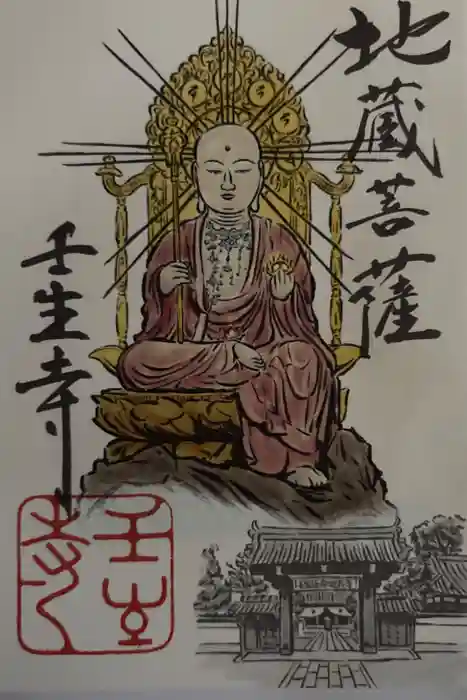 地蔵菩薩
壬生寺
壬生寺